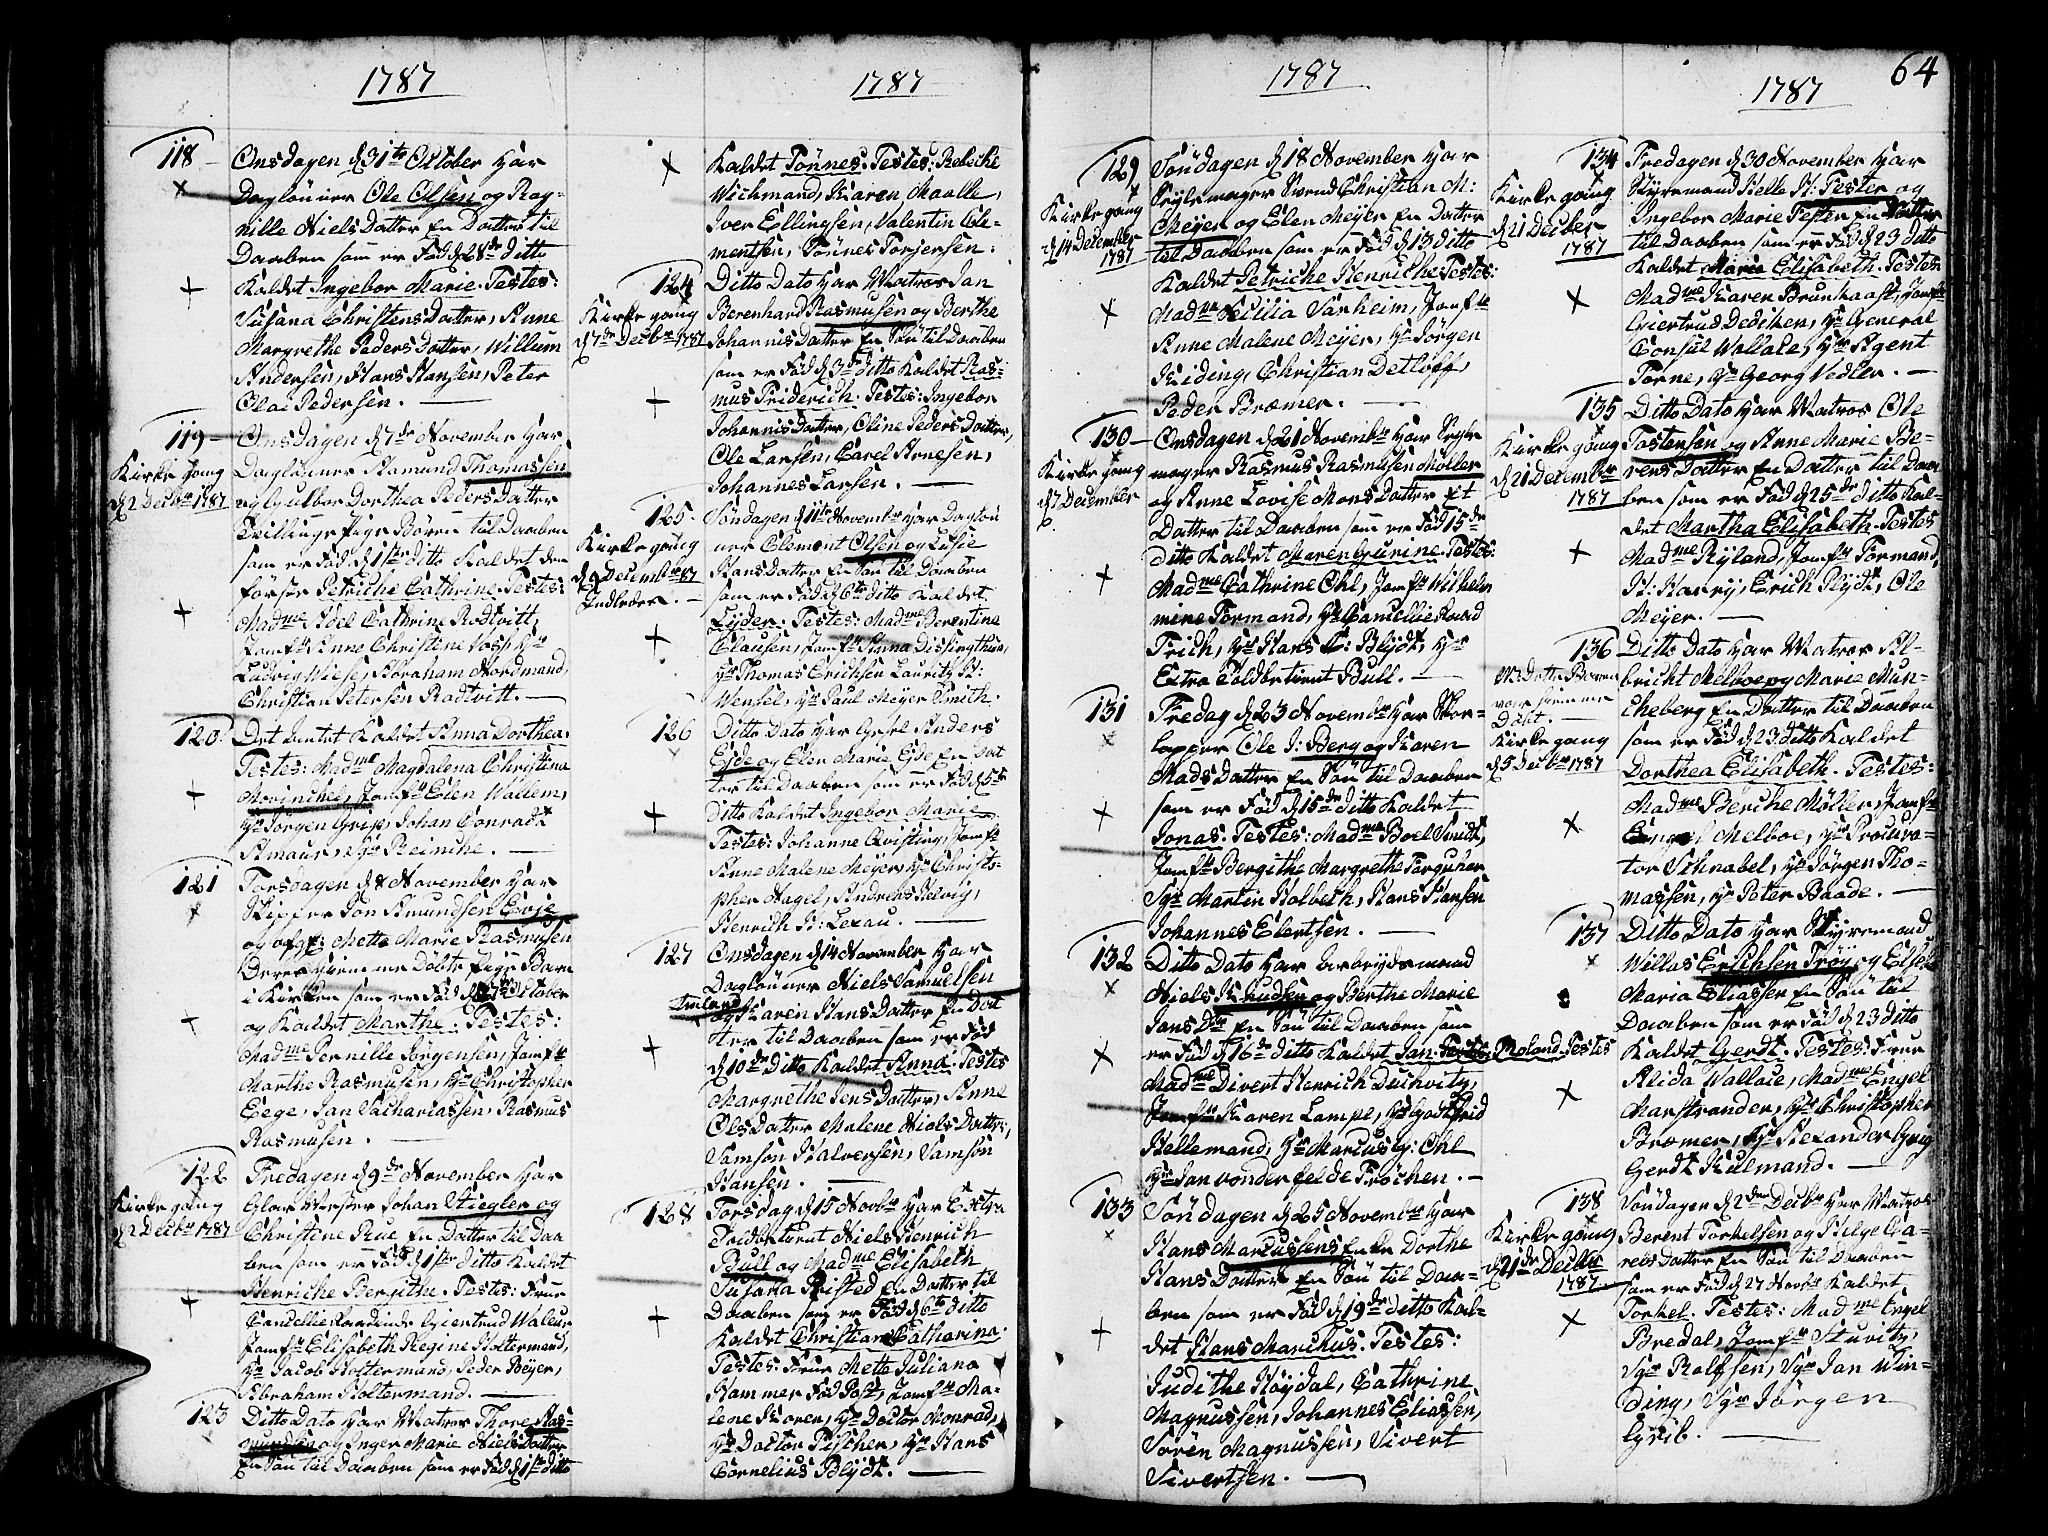 64
1787
118
Onsdagen d 31te October har
Dagløuner Ole Olsen og Rag-
nille Niels Datter En Datter til
Daaben som er Fød d 28de ditto
Kaldet Ingebor Marie. Testes:
Susana Christens Datter, Anne
Margrethe Peders Datter, Willum
Andersen, Hans Hansen, Peter
Olai Pedersen.
119
Kirke gang
d 2 Decbr 1787
Onsdagen d 7de November har
Dagløuner Aamund Thomassen
og Gulbor Dorthea Peders Datter
Tvillinge Pige Børen til Daaben
som er Fød d 1ste ditto Kaldet den
første Petriche Cathrine. Testes:
Madme Adel Cathrine Rodtvitt,
Jomfr Anne Christine Voss, Hr
Ludvig Wiese, Abraham Nordmand,
Christian Petersen Rodtvitt.
120
Det andet Kaldet Anna Dorthea.
Testes: Madme Magdalena Christina
Morinchel, Jomfr Elen Wallem,
Hr Jørgen Grip, Johan Conradt
Amaur, Hr Reinche.
121
Torsdagen d 8 November har
Skipper Jon Amundsen Evje
og afgt: Mette Marie Rasmusen
Deres hiemme Døbte Pige Barn
i Kirken som er Fød d 27de October
og Kaldet Marthe. Testes:
Madme Pernille Jørgensen, Jomfr
Marthe Rasmusen, Hr Christopher
Eege, Jan Sachariassen, Rasmus
Rasmusen.
122
Kirke gang
d 2 Decbr 1787
Fredagen d 9de November har
Glar Mester Johan Stiegler og
Christine Rue En Datter til Daa
ben som er Fød d 1ste ditto Kaldet
Henriche Bergithe. Testes: Frue
Cancellie Raadinde Giertrud Waleur
Jomfr Elisabeth Regine Holtermand,
Hr Jacob Holtermand, Peder Beyer,
Abraham Holtermand.
123
Ditto Dato har Matros Thore Ras-
mundsen og Inger Marie Niels Datter
En Søn til Daaben som er Fød d 1ste ditto
1787
Kaldet Tønnes. Testes: Rebiche
Wichmand, Karen Maalle,
Iver Ellingsen, Valentin Cle-
mentsen, Tønnes Torjersen.
124
Kirke gang
d 7de Decbr 1787
Ditto Dato har Matros Jan
Berenhard Rasmusen og Berthe
Johannis Datter En Søn til Daaben
som er Fød d 3de ditto Kaldet Ras-
mus Friderich. Testes: Ingebor
Johannis Datter, Oline Peders Datter,
Ole Larsen, Carel Arnesen,
Johannes Larsen.
125
Kirke gang
d 9 Decembr 87
Indleder.
Søndagen d 11te Novembr har Dagløu
ner Clement Olsen og Lisie
Hans Datter En Søn til Daaben
som er Fød d 6te ditto Kaldet
Lyder. Testes: Madme Berentine
Clausen, Jomfr Anna Dissingthun,
Hr Thomas Erichsen Lauritz H:
Wensel, Hr Paul Meyer Smith.
126
Ditto Dato har Gesel Anders
Eyde og Elen Marie Eyde En Dat
ter til Daaben som er Fød d 5te
Ditto Kaldet Ingebor Marie
Testes: Johanne Qvisting, Jomfr
Anne Malene Meyer, Hr Christo-
pher Nagel, Andreas Helvig,
Henrich H: Lexau.
127
Onsdagen d 14 November har
Dagløuner Niels Samuelsen
Tveland
og Karen Hans Datter En Dat
ter til Daaben som er Fød
d 10de Ditto Kaldet Anna. Testes
Margrethe Jens Datter, Anne
Ols Datter Malene Niels Datter,
Samson Halversen, Samson
Hansen.
128
Torsdag d 15 Novbr har Extra
Toldbetient Niels Henrich
Bull og Madme Elisabeth
Susana Fristed En Datter til
Daaben som er Fød d 6te ditto
Kaldet Christiane Catharina.
Testes: Frue Mette Juliana
Hammer Fød Post, Jomfr Ma-
lene Koren, Hr Doctor Monrad,
Hr Doctor Fischer, Hr Hans
Cornelius Blÿdt.
1787
129
Kirke gang
d 14 December
1787
Søndagen d 18 November har
Seyle mager Svend Christian M:
Meyer og Elen Meyer En Datter
til Daaben som er Fød d 13 ditto
Kaldet Petriche Henriche. Testes:
Madme Cecilia Sarheim, Jomfr
Anne Malene Meyer, Hr Jørgen
Kiding, Christian Detloff,
Peder Bræmer.
130
Kirke gang
d 7 December
Onsdagen d 21 Novembr har Seyle
mager Rasmus Rasmusen Møller
og Anne Lovise Mons Datter Et
Datter til Daaben som er Fød 15de
Ditto Kaldet Maren Gurine. Testes:
Madme Cathrine Ohl, Jomfr Wilhelm
mine Formand, Hr Cancellie Raad
Frich, Hr Hans C: Blÿdt, Hr
Extra Toldbetient Bull.
131
Fredag d 23 Novembr har Skor-
lapper Ole J: Berg og Karen
Mads Datter En Søn til Daaben
som er Fød d 15de ditto Kaldet
Jonas. Testes: Madme Boel Smidt,
Jomfr Bergithe Margrethe Farquhar
Sr Martin Holbeth, Hans Hansen
Johannes Ebertsen.
132
Ditto Dato har Arbeydsmand
Niels Knudsen og Berthe Marie
Jans Dtr En Søn til Daaben som
er Fød d 16de ditto Kaldet Jan Roland. Testes
Madme Divert Henrich Duchvitz,
Jomfr Karen Lampe, Hr Godtfrid
Hellemand, Hr Marcus G: Ohl
Hr Jan vonder felde Frøchen.
133
Søndagen d 25 Novembr har
Hans Marcussens Enke Dorthe
Hans Datter En Søn til Daa-
ben som er Fød d 19de ditto Kal-
det Hans Marchus. Testes:
Judithe Høydal, Cathrine
Magnussen, Johannes Eliassen,
Søren Magnussen, Sivert
Sivertsen.
1787
134
Kirke gang
d 21 Decber
1787
Fredagen d 30 November har
Styremand Helle H: Fester og
Ingebor Marie Fester En Datter
til Daaben som er Fød d 23 ditto
Kaldet Maria Elisabeth. Testes
Madme Karen Brunkaast, Jomfr
Giertrud Dediken, Hr General
Consul Wallace, Hr Agent
Forne, Hr Georg Vedler.
135
Kirke gang
d 21 Decembr
1787
Ditto Dato har Matros Ole
Tostensen og Anne Marie Be-
rens Datter En Datter til Daa
ben som er Fød d 25de ditto Kal-
det Martha Elisabeth. Testes
Madme Ryland, Jomfr Formand,
H: Harry, Erich Blÿdt, Ole
Meyer.
136
Dette Barn
var hiemme
Døbt.
Kirke gang
d 5 Decbr 1787
Ditto Dato har Matros Al-
bricht Melboe og Marie Mun-
cheberg En Datter til Daaben
som er Fød d 23 ditto Kaldet
Dorthea Elisabeth. Testes:
Madme Berche Møller, Jomfr
Engel Melboe, Hr Procura-
tor Schnabel, Hr Jørgen Tho-
massen, Hr Peter Baade.
137
Ditto Dato har Styremand
Willas Erichsen Trøy og Elsebe
Maria Eliassen En Søn til
Daaben som er Fød d 23 ditto
Kaldet Gerdt. Testes: Frue
Alida Wallace, Madme Engel
Marstrander, Hr Christopher
Bræmer, Hr Alexander Grieg
Gerdt Kulmand.
138
Kirke gang
d 21de Decbr
1787
Søndagen d 2den Decbr har Matros
Berent Torkelsen og Helge La-
rers Datter En Søn til Daaben
som er Fød d 27 Novbr Kaldet
Torkel. Testes: Madme Engel
Bredal, Jomfr Stuvitz,
Sr Rolfsen, Sr Jan Win-
ding, Sr Jørgen
Grib.